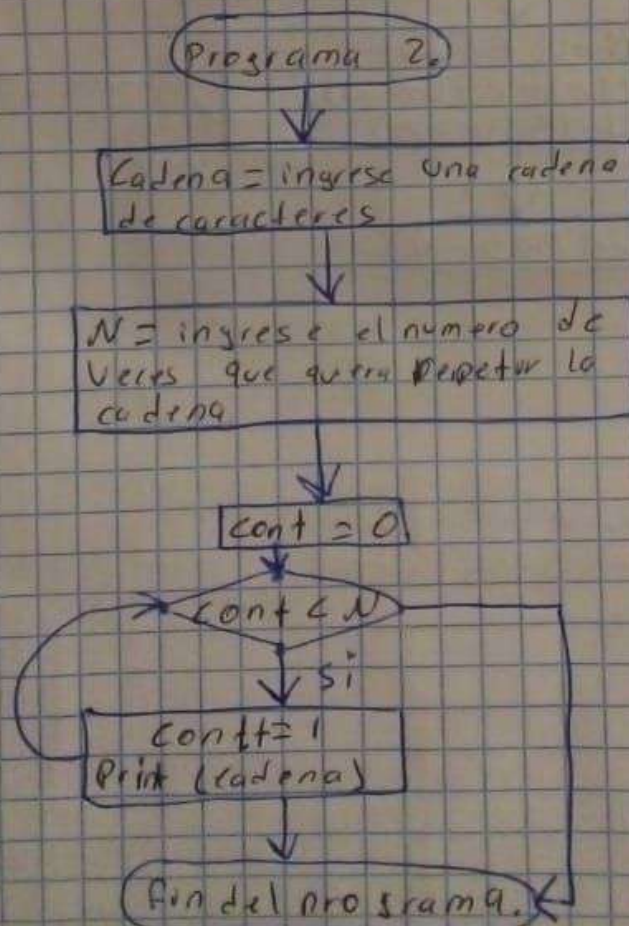 Programa 2.
Cadena = ingrese una cadena
de caracteres
N = ingrese el numero de
Veces que quiera repetir la
cadena
cont = 0
cont < N
si
cont+=1
Print (cadena)
fin del programa.